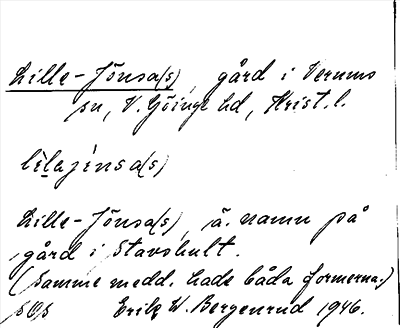 Lille-Jönsa(s), gård i Verums
sn, V. Göinge hd, Krist. l.
lìlajìnsa(s)
Lille-Jönsa(s), ä. namn på
gård i Stavshult.
(Samme medd. hade båda formerna.)
Erik W. Bergenrud 1946.